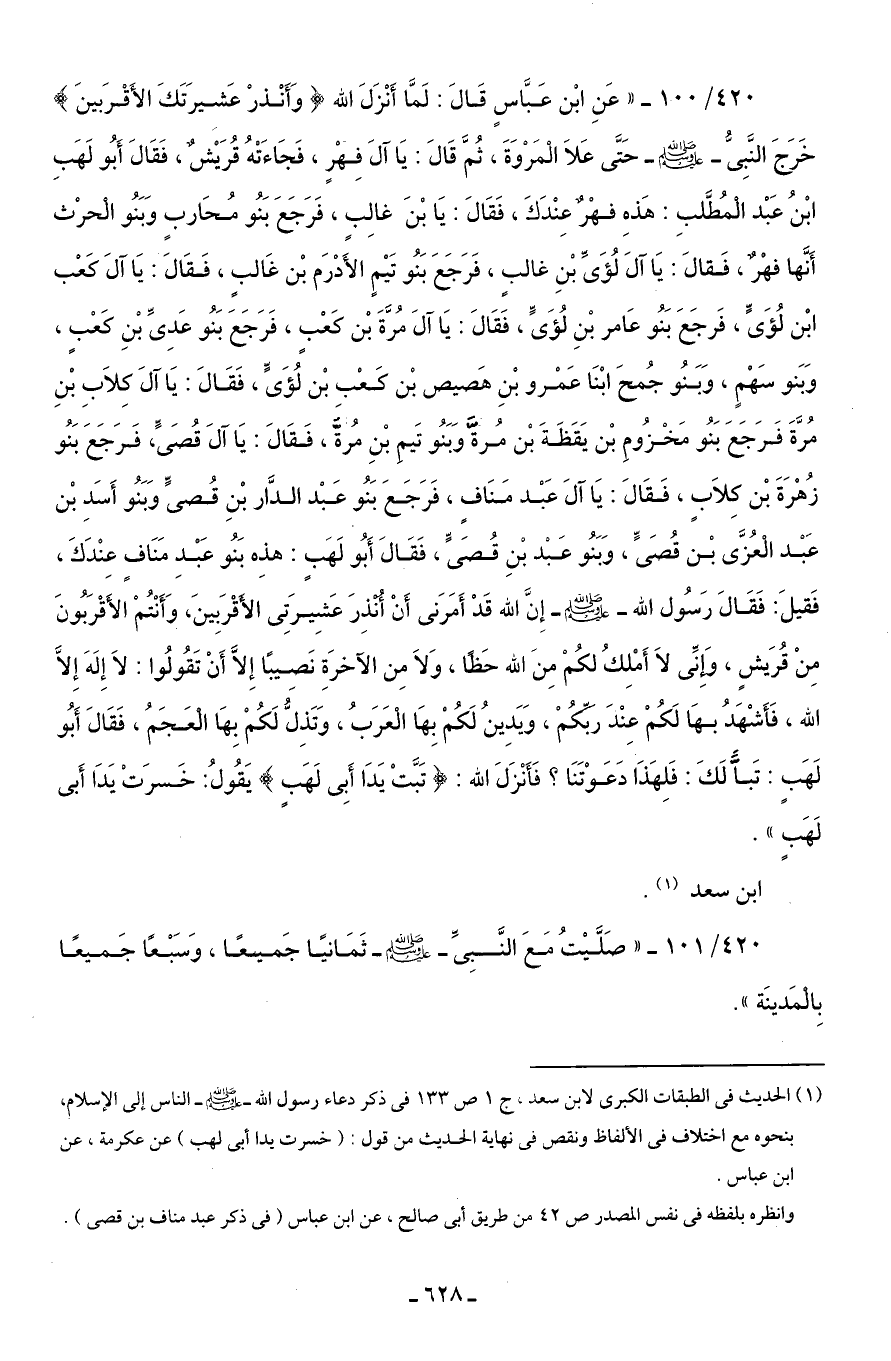 ٤٢٠/ ١٠٠ ـ « عَنِ ابْنِ عَبَّاسٍ قَالَ : لَمَّا أَنْزَلَ الله ﴿ وَأَنْذِرْ عَشِيرَتَكَ الأَقْرَبِينَ ﴾
خَرَجَ النَّبِىُّ ـ ﷺ ـ حَتَّى عَلاَ الْمَرْوَةَ ، ثُمَّ قَالَ : يَا آلَ فِهْرٍ ، فَجَاءَتْهُ قُرَيْشٌ ، فَقَالَ أَبُو لَهَبِ
ابْنُ عَبْدِ الْمُطَّلِبِ : هَذِهِ فِهْرٌ عِنْدَكَ ، فَقَالَ : يَا بْنَ غالِبٍ ، فَرَجَعَ بَنُو مُحَارِبٍ وَبَنُو الْحرْثِ
أَنَّها فِهْرٌ، فَقالَ : يَا آلَ لُؤَىِّ بْنِ غالِبٍ ، فَرَجَعَ بَنُو تَيْمِ الأَدْرَمِ بْنِ غَالِبٍ ، فَقَالَ : يَا آلَ كَعْبِ
ابْنِ لُؤَىٍّ ، فَرجَعَ بَنُو عَامرِ بْنِ لُؤَىٍّ ، فَقَالَ : يَا آلَ مُرَّةَ بْنِ كَعْبٍ ، فَرَجَعَ بَنُو عَدِىِّ بْنِ كَعْبٍ ،
وَبَنو سَهْمٍ ، وَبَنُو جُمحَ ابْنَا عَمْرِو بْنِ هَصِيص بْنِ كَعْبِ بْنِ لُؤَىٍّ ، فَقَالَ : يَا آلَ كِلاَبِ بْنِ
مُرَّةَ فَرَجَعَ بَنُو مَخْزُومِ بْنِ يَقَظَةَ بْنِ مُرةَّ وَبَنُو تَيمِ بْنِ مُرةَّ ، فَقَالَ : يَا آلَ قُصَىٍّ، فَرَجَعَ بَنُو
زُهْرَةَ بْنِ كِلاَبٍ ، فَقَالَ : يَا آلَ عَبْدِ مَنَافٍ ، فَرَجَعَ بَنُو عَبْدِ الدَّارِ بْنِ قُصىٍّ وَبَنُو أَسَدِ بْنِ
عَبْدِ الْعُزَّى بْنِ قُصَىٍّ ، وَبَنُو عَبْدِ بْنِ قُصَىٍّ ، فَقَالَ أَبُو لَهَبٍ : هذه بَنُو عَبْدِ مَنَافٍ عِنْدَكَ ،
فَقِيلَ: فَقَالَ رَسُول الله ـ ﷺ ـ إِنَّ الله قَدْ أَمَرَنِى أَنْ أُنْذِرَ عَشِيرَتِى الأَقْرَبِينَ، وَأَنْتُمْ الأَقْرَبُونَ
مِنْ قُرَيْشٍ ، وَإِنِّى لاَ أَمْلِكُ لَكُمْ مِنَ الله حَظّا ، وَلاَ مِنِ الآخِرَةِ نَصِيبًا إِلاَّ أَنْ تَقُولُوا : لاَ إِلَهَ إِلاَّ
الله ، فَأَشْهَدُ بِهَا لَكُمْ عِنْدَ رَبِّكُمْ ، وَيَدِينُ لَكُمْ بِهَا الْعَرَبُ ، وَتَذِلُّ لَكُمْ بِهَا الْعَجَمُ ، فَقَالَ أَبُو
لَهَبٍ : تَبّاً لَكَ : فَلِهَذَا دَعَوْتَنَا ؟ فَأَنْزَلَ الله : ﴿ تَبَّتْ يَدَا أَبِى لَهَبٍ ﴾ يَقُولُ: خَسِرَتْ يَدَا أَبِى
لَهَبٍ » .
ابن سعد (١) .
٤٢٠/ ١٠١ ـ « صَلَّيْتُ مَعَ النَّبِىِّ ـ ﷺ ـ ثَمَانِيًا جَمِيعًا ، وَسَبْعًا جَمِيعًا
بِالْمَدِينَةِ ».
(١) الحديث فى الطبقات الكبرى لابن سعد ، ج ١ ص ١٣٣ فى ذكر دعاء رسول الله ـ ﷺ ـ الناس إلى الإسلام،
بنحوه مع اختلاف فى الألفاظ ونقص فى نهاية الحديث من قول : ( خسرت يدا أبى لهب ) عن عكرمة ، عن
ابن عباس .
وانظره بلفظه فى نفس المصدر ص ٤٢ من طريق أبى صالح ، عن ابن عباس ( فى ذكر عبد مناف بن قصى ) .
ـ ٦٢٨ ـ